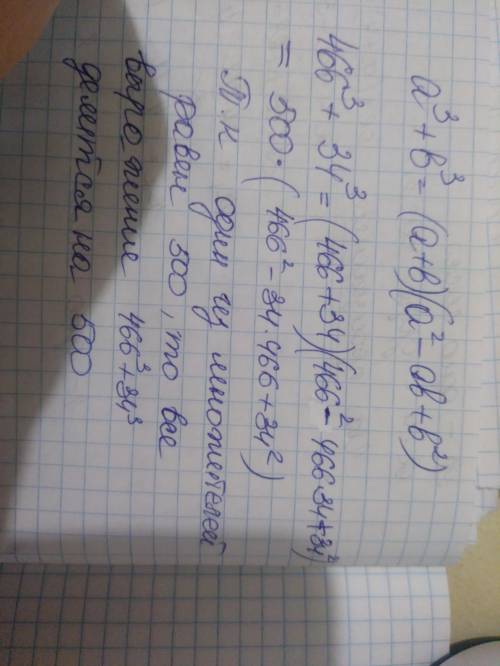 a³+b³=(a+b)(a²-ab+b²)
466³+34³=(466+34)(466²-466·34+34²)
= 500·(466²-34·466+34²)
Т.к один из множителей
равен 500, то все
выражение 466³+34³
делится на 500